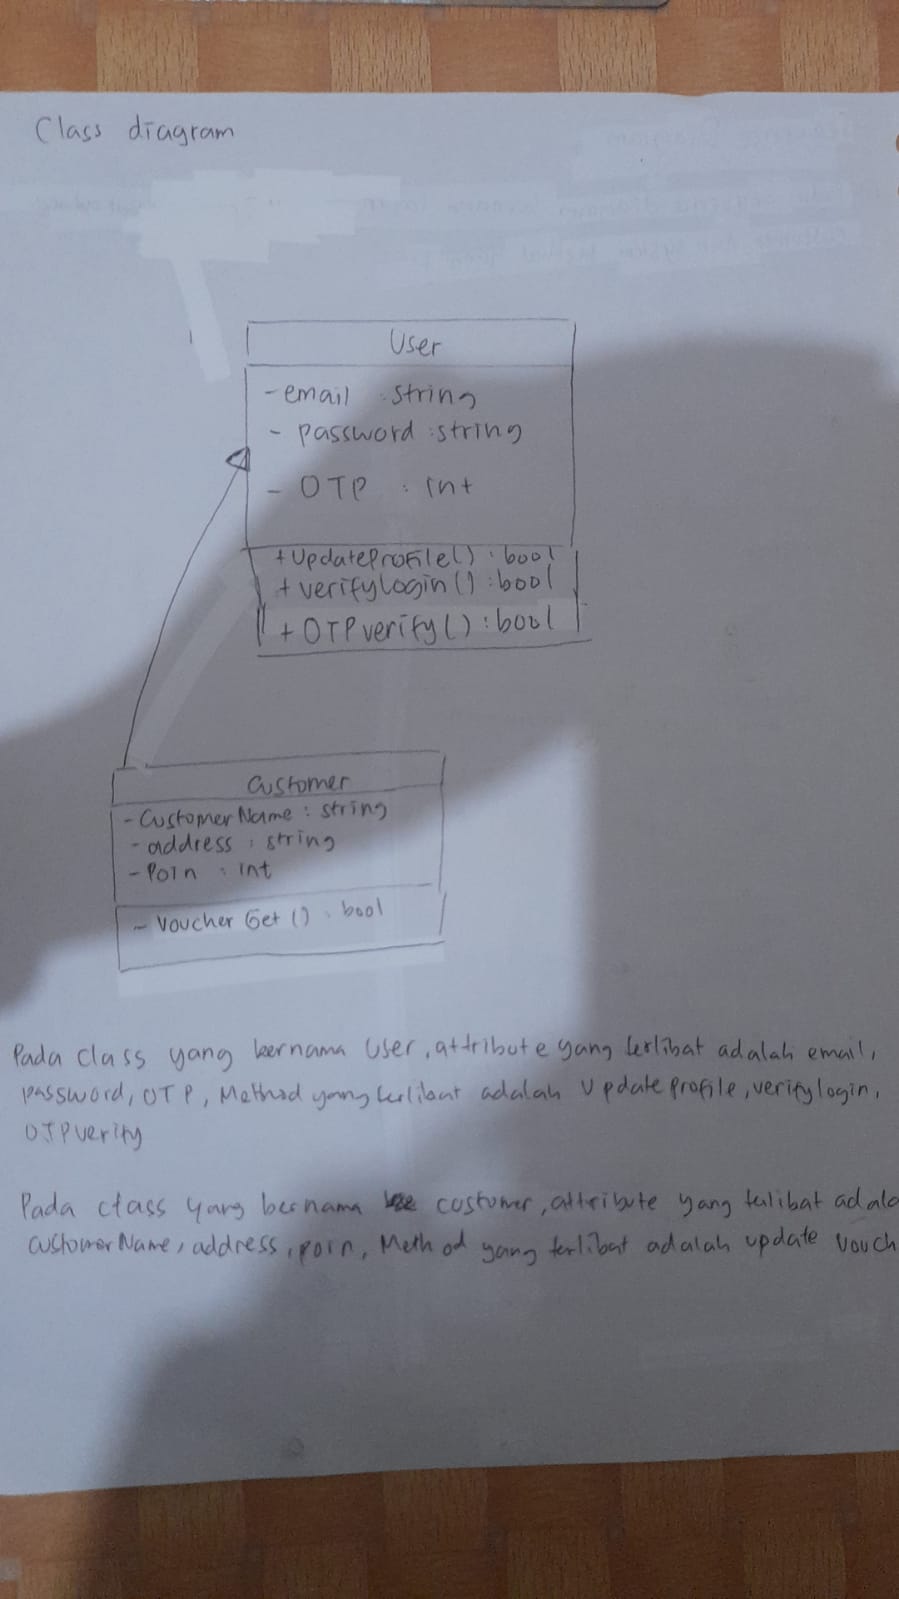 Class diagram
User
- email : string
- password : string
- OTP : int
+ UpdateProfile() : bool
+ verifylogin() : bool
+ OTPverify() : bool
Customer
- CustomerName : string
- address : string
- Poin : int
- Voucher Get () : bool
Pada class yang bernama User, attribute yang terlibat adalah email,
password, OTP, Method yang terlibat adalah Update profile, verifylogin,
OTPverify
Pada class yang bernama costumer, attribute yang terlibat adala
CustomerName, address, poin, Method yang terlibat adalah update Vouch